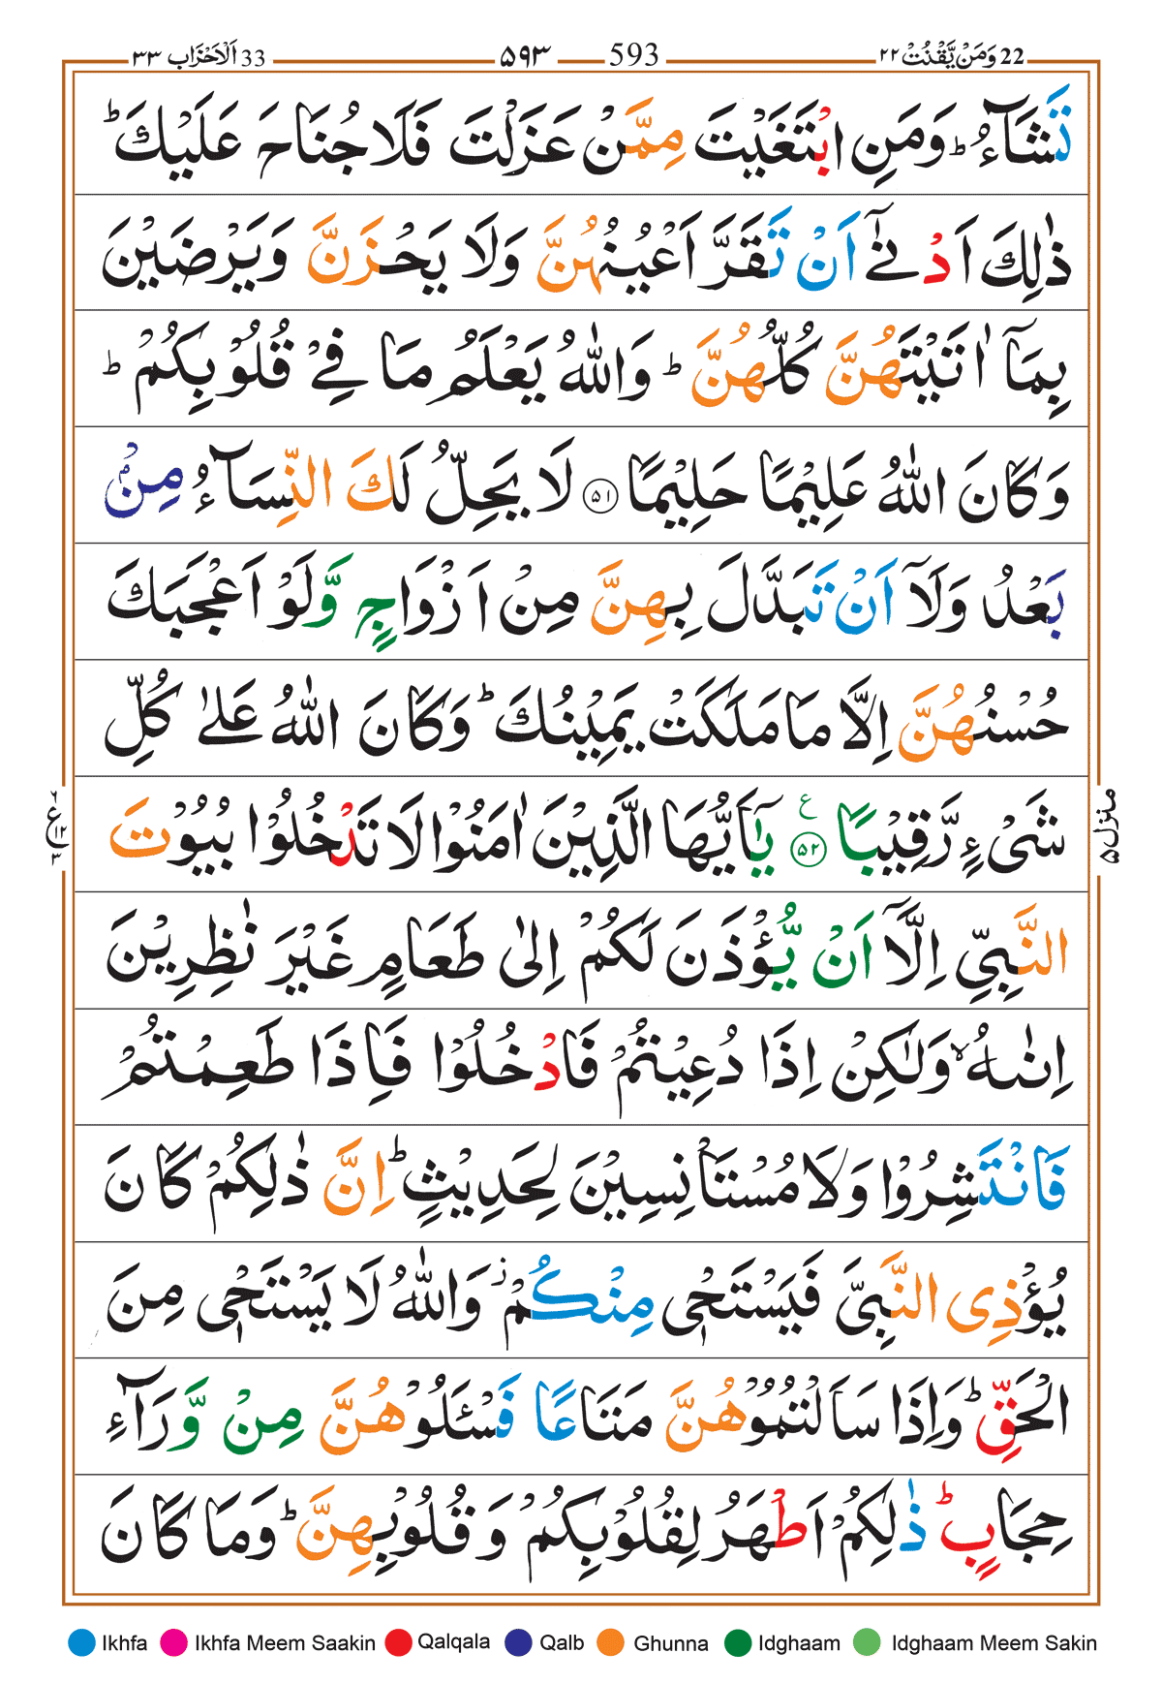 22 وَمَنْ يَّقْنُتْ ٢٢
593 ۵۹۳
33 اَلْاَحْزَاب ٣٣
تَشَآءُ ؕ وَمَنِ ابْتَغَيْتَ مِمَّنْ عَزَلْتَ فَلَا جُنَاحَ عَلَيْكَ ؕ
ذٰلِكَ اَدْنٰۤى اَنْ تَقَرَّ اَعْيُنُهُنَّ وَلَا يَحْزَنَّ وَيَرْضَيْنَ
بِمَاۤ اٰتَيْتَهُنَّ كُلُّهُنَّ ؕ وَاللّٰهُ يَعْلَمُ مَا فِيْ قُلُوْبِكُمْ ؕ
وَكَانَ اللّٰهُ عَلِيْمًا حَلِيْمًا ﴿۵۱﴾ لَا يَحِلُّ لَكَ النِّسَآءُ مِنْۢ
بَعْدُ وَلَاۤ اَنْ تَبَدَّلَ بِهِنَّ مِنْ اَزْوَاجٍ وَّلَوْ اَعْجَبَكَ
حُسْنُهُنَّ اِلَّا مَا مَلَكَتْ يَمِيْنُكَ ؕ وَكَانَ اللّٰهُ عَلٰى كُلِّ
شَيْءٍ رَّقِيْبًا ﴿۵۲﴾ ع يٰۤاَيُّهَا الَّذِيْنَ اٰمَنُوْا لَا تَدْخُلُوْا بُيُوْتَ
النَّبِيِّ اِلَّاۤ اَنْ يُّؤْذَنَ لَكُمْ اِلٰى طَعَامٍ غَيْرَ نٰظِرِيْنَ
اِنٰىهُ ۙ وَلٰكِنْ اِذَا دُعِيْتُمْ فَادْخُلُوْا فَاِذَا طَعِمْتُمْ
فَانْتَشِرُوْا وَلَا مُسْتَاْنِسِيْنَ لِحَدِيْثٍ ؕ اِنَّ ذٰلِكُمْ كَانَ
يُؤْذِى النَّبِيَّ فَيَسْتَحْيٖ مِنْكُمْ ؗ وَاللّٰهُ لَا يَسْتَحْيٖ مِنَ
الْحَقِّ ؕ وَاِذَا سَاَلْتُمُوْهُنَّ مَتَاعًا فَسْـَٔلُوْهُنَّ مِنْ وَّرَآءِ
حِجَابٍ ؕ ذٰلِكُمْ اَطْهَرُ لِقُلُوْبِكُمْ وَقُلُوْبِهِنَّ ؕ وَمَا كَانَ
منزل ۵
ع ١٢
Ikhfa Ikhfa Meem Saakin Qalqala Qalb Ghunna Idghaam Idghaam Meem Sakin